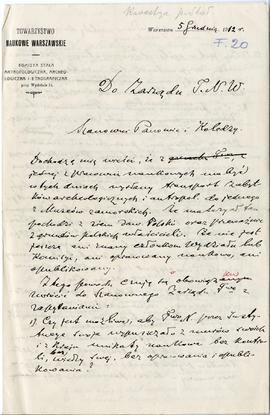 Kwestya
TOWARZYSTWO
NAUKOWE WARSZAWSKIE
KOMISYA STAŁA
ANTROPOLOGICZNA, ARCHEO-
LOGICZNA I ETNOGRAFICZNA
przy Wydziale II.
Warszawa 5 Grudnia 1912 r.
F. 20
Do Zarządu T.N.W.
Szanowni Panowie i Koledzy.
Dochodzą mię wieści, że z
jednej z Pracowni naukowych ma być
w tych dniach wysłany transport zabyt-
ków archeologicznych i antropol. do jednego
z Muzeów zamorskich. Że materyał ten
pochodzi z ziem dawn. Polski oraz przeważnie
z gruntów polskich właścicieli. Że nie jest
jeszcze ani znany członkom Wydziału lub
Komisyi, ani opracowany naukowo, ani
opublikowany.
Z tego powodu czuję się obowiązanym
zwrócić do Szanownego Zarządu Twa z
zapytaniami:
1) Czy jest możliwe, aby Tow. N. przez Insty-
tucye swoje wypuszczało z murów swoich
i z Kraju unikaty naukowe bez kontro-
li, bez wiedzy swej, bez opracowania i opubli-
kowania?